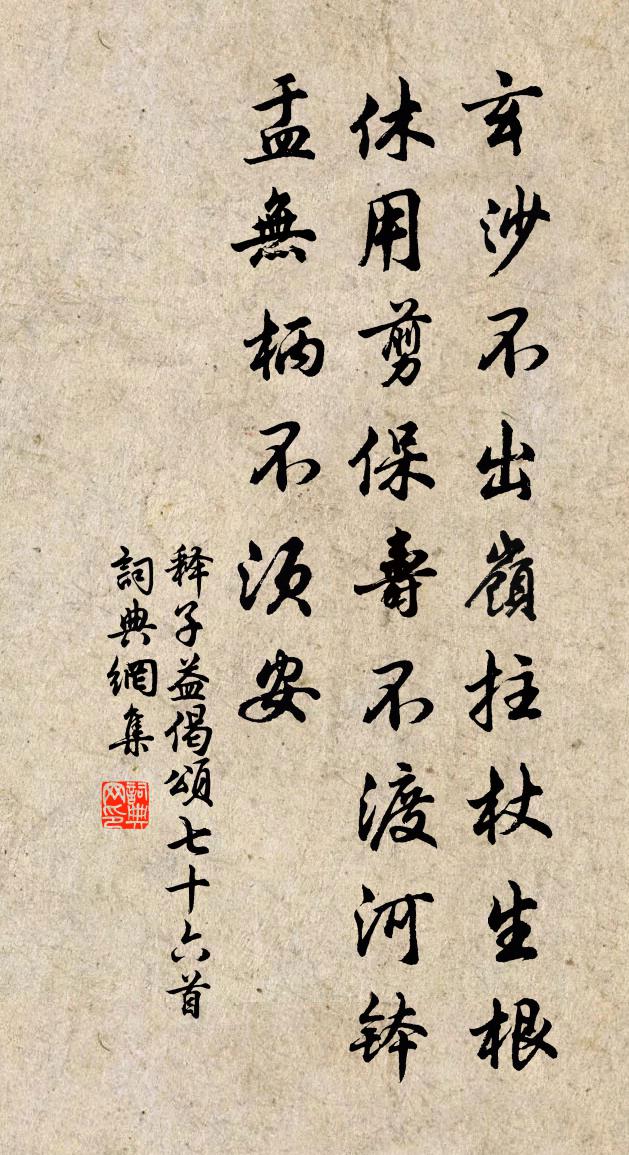 玄沙不出嶺拄杖生根
休用剪保壽不渡河鉢
盂無柄不須安
释子益偈頌七十六首
詞典網集
詞典网印